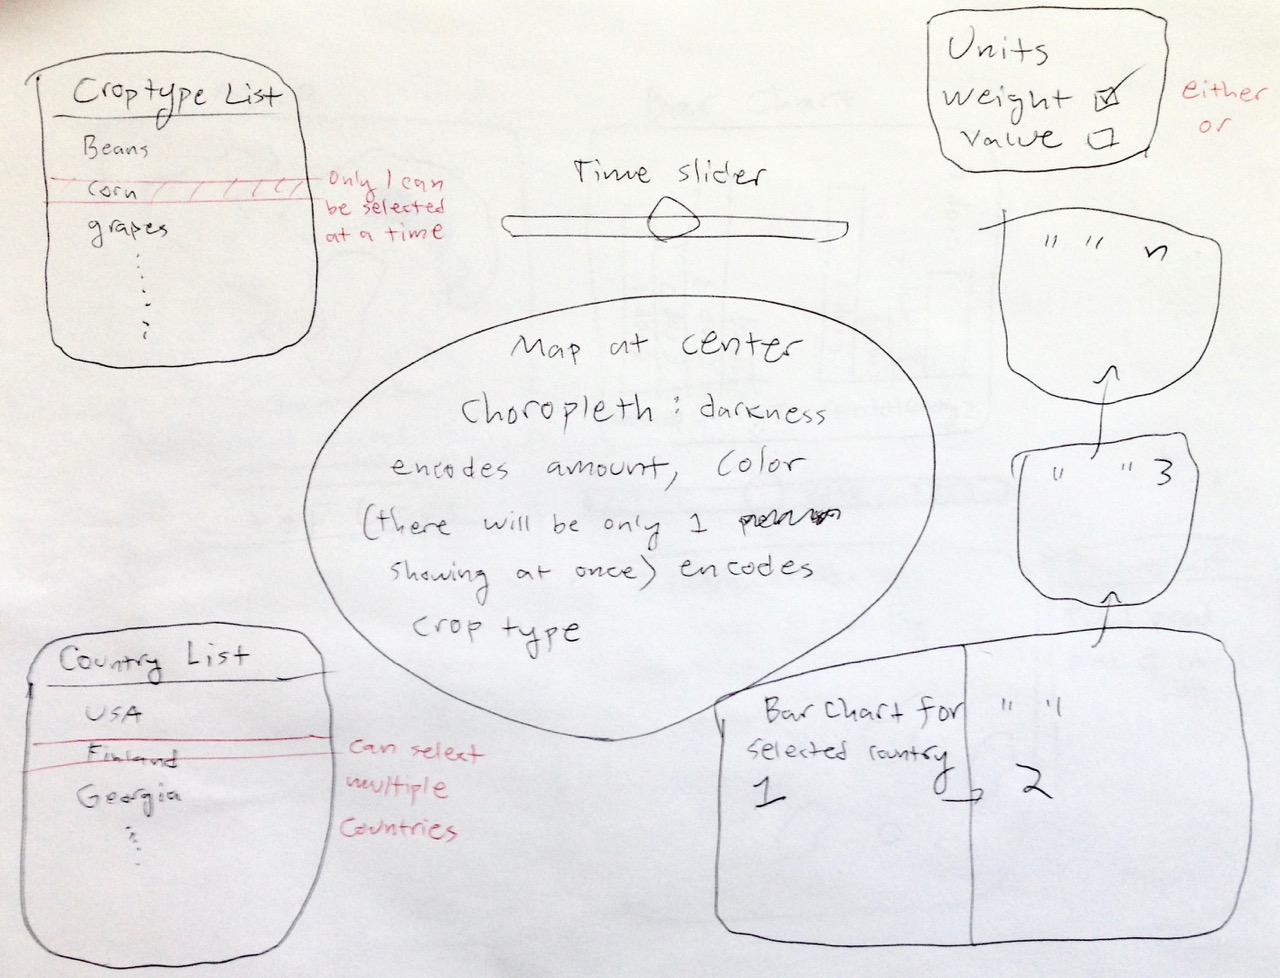 Crop type List
Beans
Corn
grapes
Only 1 can
be selected
at a time
Time slider
Units
weight
value
either
or
" " n
" " 3
Map at center
Choropleth : darkness
encodes amount, Color
(there will be only 1
showing at once) encodes
crop type
Country List
USA
Finland
Georgia
can select
multiple
countries
Bar Chart for
selected country
1
" "
2